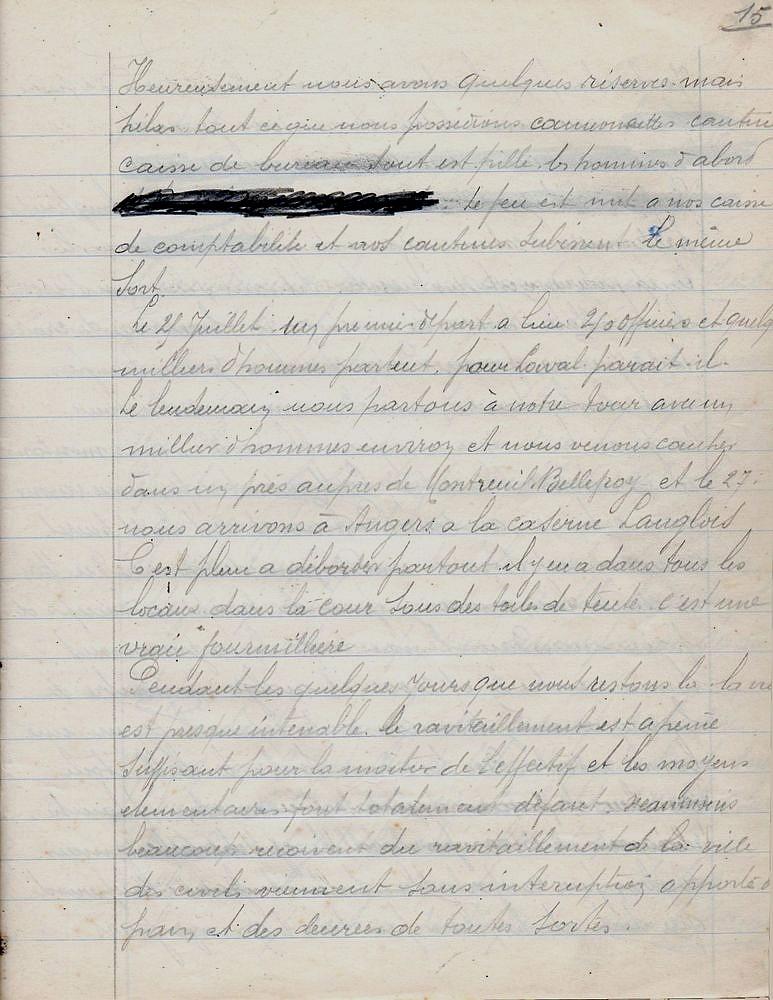 15
Heureusement nous avons quelques réserves mais
hélas tout ce que nous possédions camionnettes cantine
caisse de bureau tout est pillé les hommes d'abord
le feu est mit a nos caisse
de comptabilité et nos cantines subissent le même
sort.
Le 21 Juillet un premier départ a lieu officiers et quelq
milliers d'hommes partent, pour Laval parait-il.
Le lendemain nous partons à notre tour avec un
millier d'hommes environ et nous venons coucher
dans un prés auprès de Montreuil Bellefroy et le 27
nous arrivons à Angers a la caserne Langlois
C'est plein a déborder partout il y en a dans tous les
locaux dans la cour sous des toiles de tente c'est une
vraie fourmillière
Pendant les quelques jours que nous restons la la vie
est presque intenable le ravitaillement est a peine
suffisant pour la moitier de l'effectif et les moyens
elementaires font totalement défaut, néanmoins
beaucoup recoivent du ravitaillement de la ville
des civils viennent sans interruption apporté d
pain et des denrées de toutes sortes.